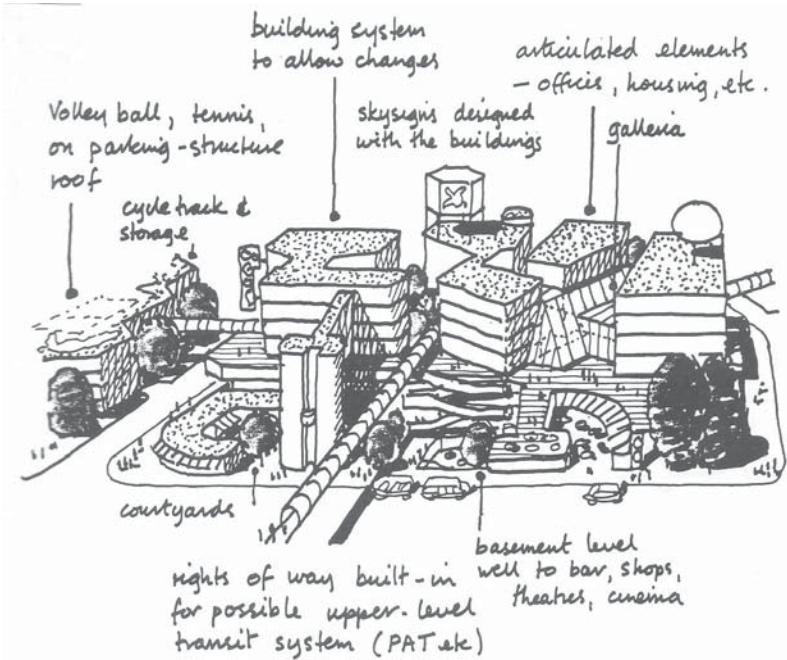 building system
to allow changes
articulated elements
– offices, housing, etc.
Volley ball, tennis,
on parking-structure
roof
skysigns designed
with the buildings
galleria
cycle track &
storage
courtyards
rights of way built-in
for possible upper-level
transit system (PAT etc)
basement level
well to bar, shops,
theatres, cinema